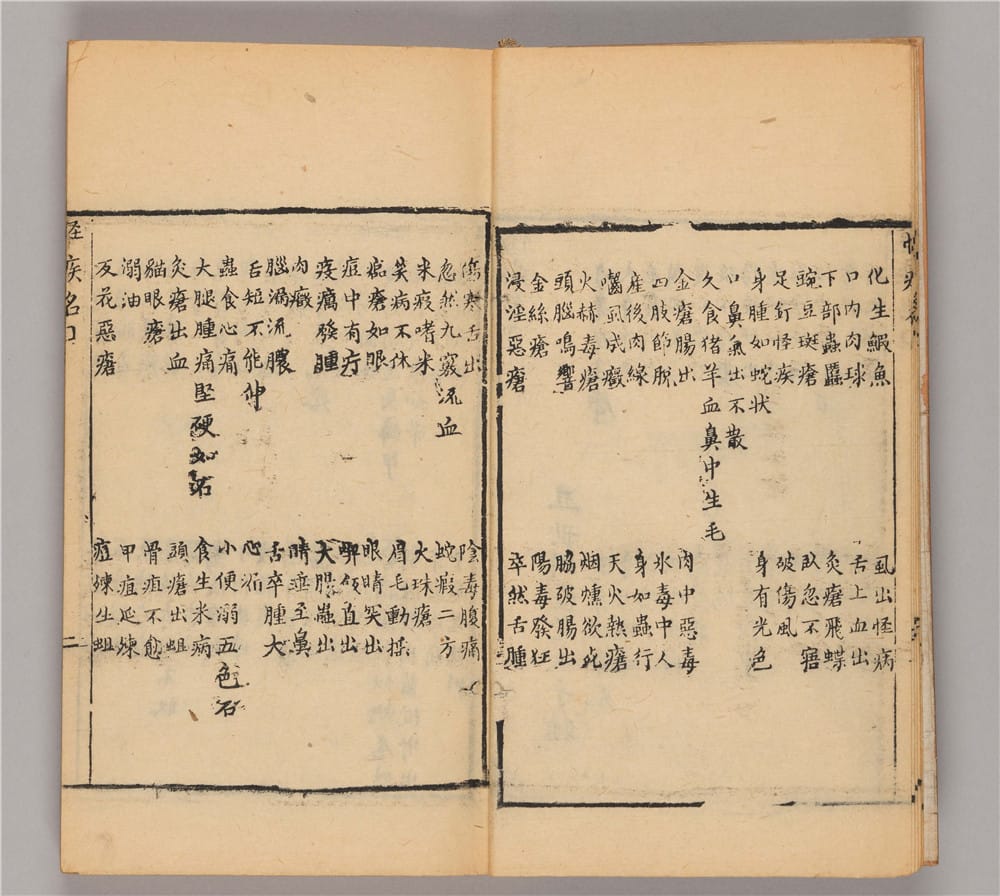 化生鰕魚
虱出怪病
口內肉球
舌上血出
下部蟲䘌
灸瘡飛蝶
豌豆斑瘡
臥忽不寤
足釘怪疾
破傷風
身腫如蛇狀
身有光色
口鼻氣出不散
久食猪羊血鼻中生毛
金瘡腸出
肉中惡毒
四肢節脫
氷毒中人
産後肉線
身如蟲行
囓虱成癥
天火熱瘡
火赫毒瘡
烟燻欲死
頭腦鳴響
脇破腸出
金絲瘡
陽毒發狂
浸淫惡瘡
卒然舌腫
傷寒舌出
陰毒腹痛
忽然九竅流血
蛇瘕二方
米疫嗜米
火珠瘡
笑病不休
眉毛動搖
痣瘡如眼
眼睛突出
痘中有疔
疫癘發腫
大腸蟲出
肉癥
睛垂至鼻
腦瀉流膿
舌卒腫大
舌短不能伸
心
蟲食心痛
小便溺五色石
大腿腫痛堅硬如石
食生米病
灸瘡出血
頭瘡出蛆
貓眼瘡
骨疽不愈
溺油
甲疽延爛
反花惡瘡
痘爛生蛆
怪疾名目
二